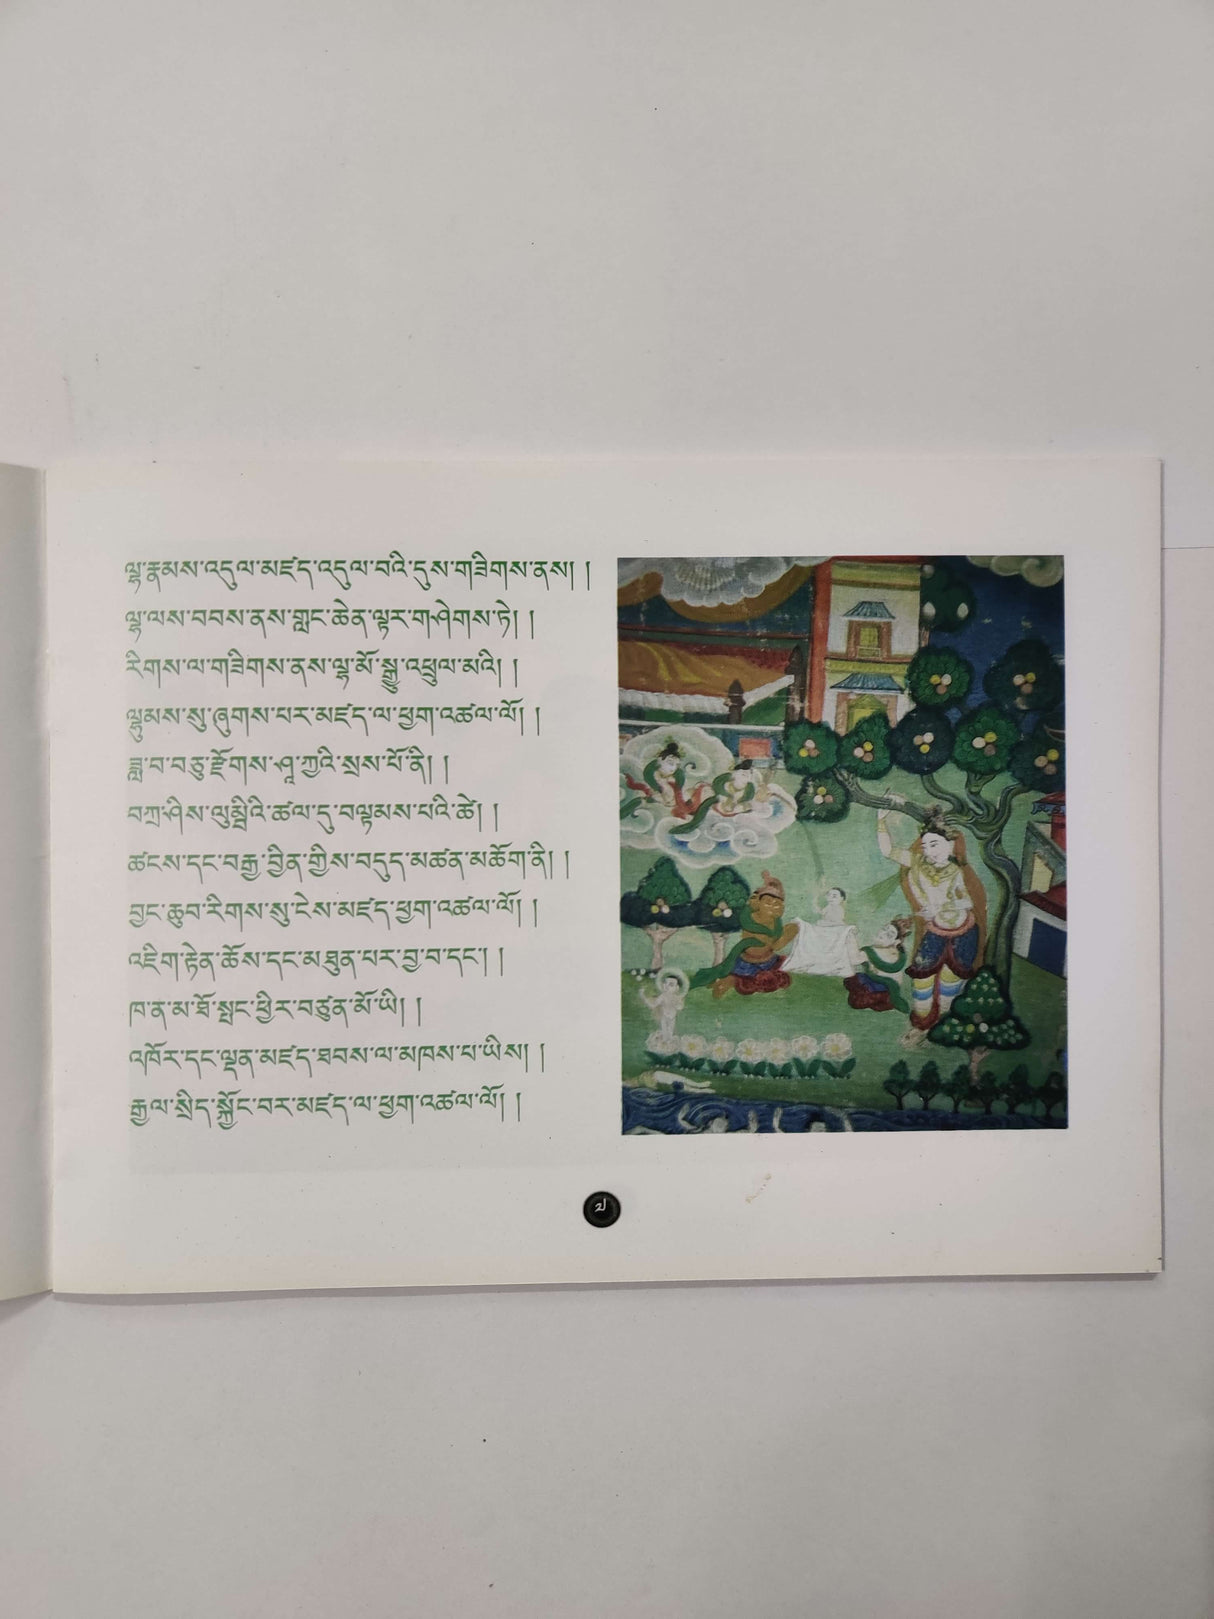 ལྷ་རྣམས་འདུལ་མཛད་འདུལ་བའི་དུས་གཟིགས་ནས། །
ལྷ་ལས་བབས་ནས་གླང་ཆེན་ལྟར་གཤེགས་ཏེ། །
རིགས་ལ་གཟིགས་ནས་ལྷ་མོ་སྒྱུ་འཕྲུལ་མའི། །
ལྷུམས་སུ་ཞུགས་པར་མཛད་ལ་ཕྱག་འཚལ་ལོ། །
ཟླ་བ་བཅུ་རྫོགས་ཤཱཀྱའི་སྲས་པོ་ནི། །
བཀྲ་ཤིས་ལུམྦིའི་ཚལ་དུ་བལྟམས་པའི་ཚེ། །
ཚངས་དང་བརྒྱ་བྱིན་གྱིས་བདུད་མཚན་མཆོག་ནི། །
བྱང་ཆུབ་རིགས་སུ་ངེས་མཛད་ཕྱག་འཚལ་ལོ། །
འཇིག་རྟེན་ཆོས་དང་མཐུན་པར་བྱ་བ་དང་། །
ཁ་ན་མ་ཐོ་སྤང་ཕྱིར་བཙུན་མོ་ཡི། །
འཁོར་དང་ལྡན་མཛད་ཐབས་ལ་མཁས་པ་ཡིས། །
རྒྱལ་སྲིད་སྐྱོང་བར་མཛད་ལ་ཕྱག་འཚལ་ལོ། །
༢